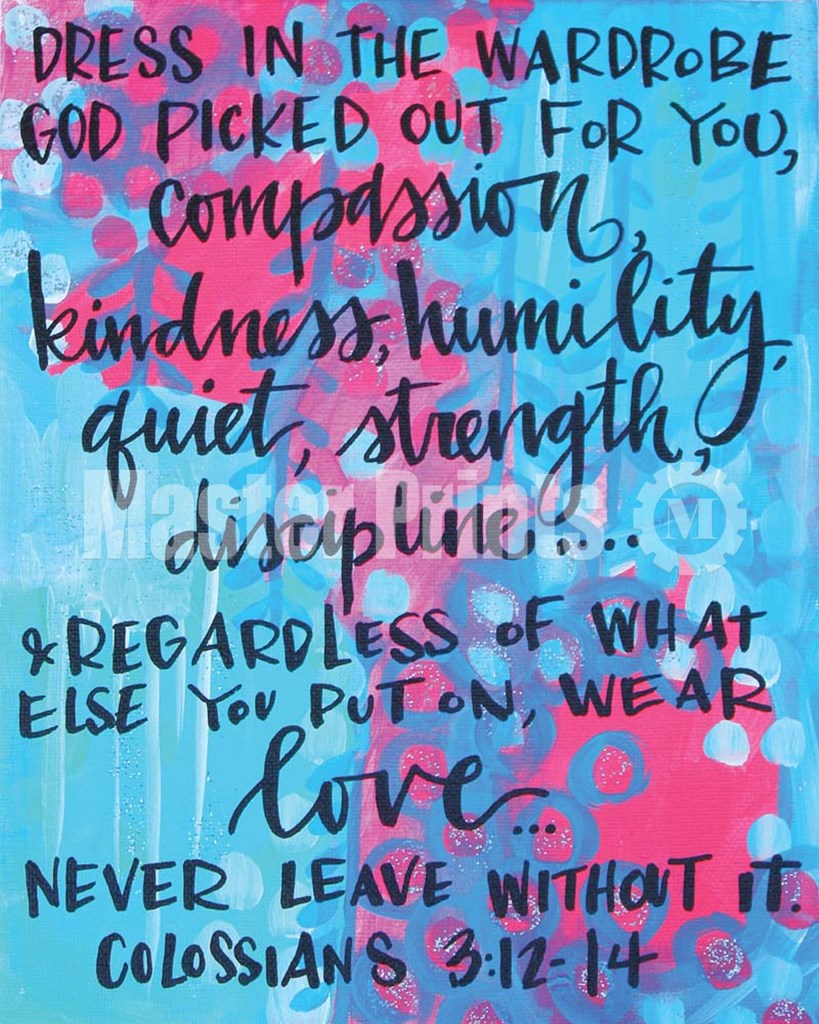 DRESS IN THE WARDROBE
GOD PICKED OUT FOR YOU,
compassion,
kindness, humility,
quiet, strength,
Master Prints M
discipline....
& REGARDLESS OF WHAT
ELSE YOU PUT ON, WEAR
love...
NEVER LEAVE WITHOUT IT.
COLOSSIANS 3:12-14